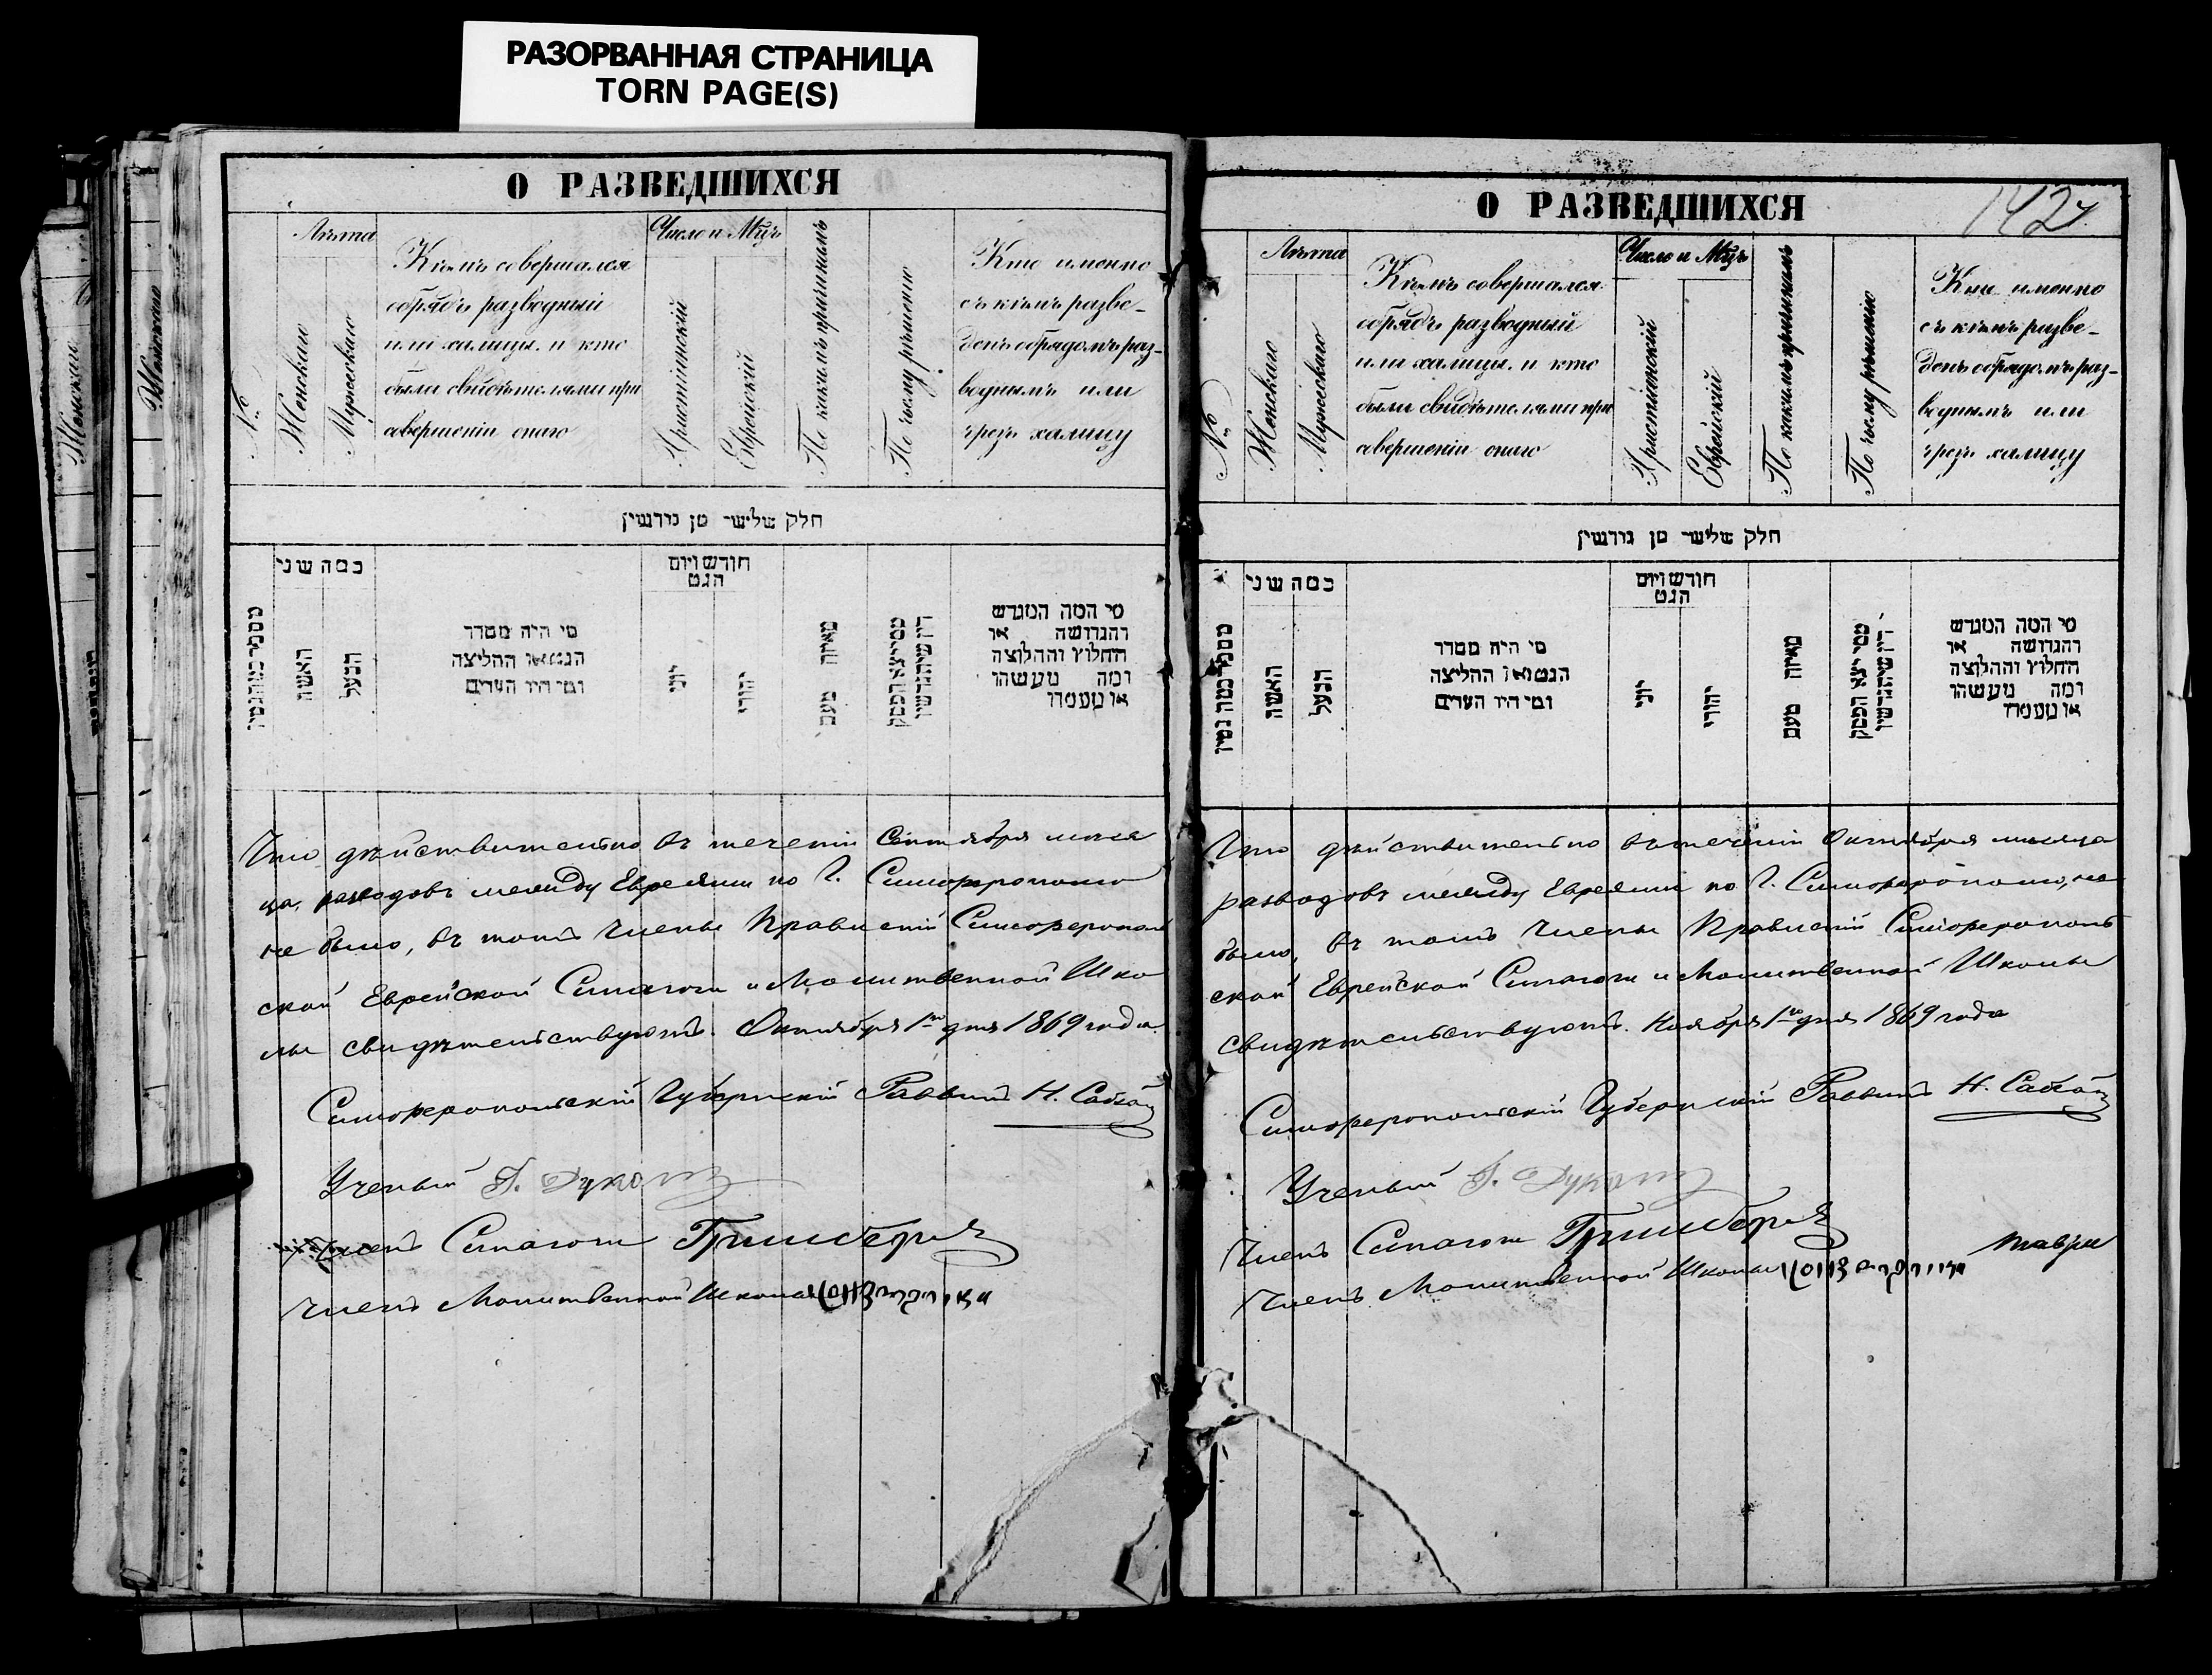 РАЗОРВАННАЯ СТРАНИЦА
TORN PAGE(S)
О РАЗВЕДШИХСЯ
№
Лѣта
Женскаго
Мужескаго
Кѣмъ совершался
обрядъ разводный
или халицы, и кто
были свидѣтелями при
совершеніи онаго
Число и Мѣц.
Христіянскій
Еврейскій
По какимъ причинамъ
По чьему рѣшенію
Кто именно
съ кѣмъ разве-
денъ обрядомъ раз-
воднымъ или
чрезъ халицу
חלק שלישי מן גירושין
מספר כמה גטין
כמה שני
האשה
הבעל
מי היה מסדר
הגט או החליצה
ומי היו העדים
חודש ויום
הגט
יוני
יהודי
מאיזה טעם
ממי יצא הפסק
דין שיתגרשו
מי המה המגרש
והגרושה או
החלוץ והחלוצה
ומה מעשהו
או מעמדו
Что дѣйствительно въ теченіи Сентября меся
ца, разводовъ между Евреями по Г. Симферополю
не было, въ томъ Члены Правленій Симферополь
ской Еврейской Синагоги и Молитвенной Шко
лы свидѣтельствуютъ. Октября 1го дня 1869 года.
Симферопольскій Губернскій Раввинъ Н.
Ученый
Членъ Синагоги Гринберг
Членъ Молитвенной Школы
О РАЗВЕДШИХСЯ
142
№
Лѣта
Женскаго
Мужескаго
Кѣмъ совершался
обрядъ разводный
или халицы, и кто
были свидѣтелями при
совершеніи онаго
Число и Мѣц.
Христіянскій
Еврейскій
По какимъ причинамъ
По чьему рѣшенію
Кто именно
съ кѣмъ разве-
денъ обрядомъ раз-
воднымъ или
чрезъ халицу
חלק שלישי מן גירושין
מספר כמה גטין
כמה שני
האשה
הבעל
מי היה מסדר
הגט או החליצה
ומי היו העדים
חודש ויום
הגט
יוני
יהודי
מאיזה טעם
ממי יצא הפסק
דין שיתגרשו
מי המה המגרש
והגרושה או
החלוץ והחלוצה
ומה מעשהו
או מעמדו
Что дѣйствительно въ теченіи Октября месяца
разводовъ между Евреями по Г. Симферополю, не
было, въ томъ Члены Правленій Симферополь
ской Еврейской Синагоги и Молитвенной Школы
свидѣтельствуютъ. Ноября 1го дня 1869 года
Симферопольскій Губернскій Раввинъ Н.
Ученый
Членъ Синагоги Гринберг
Членъ Молитвенной Школы